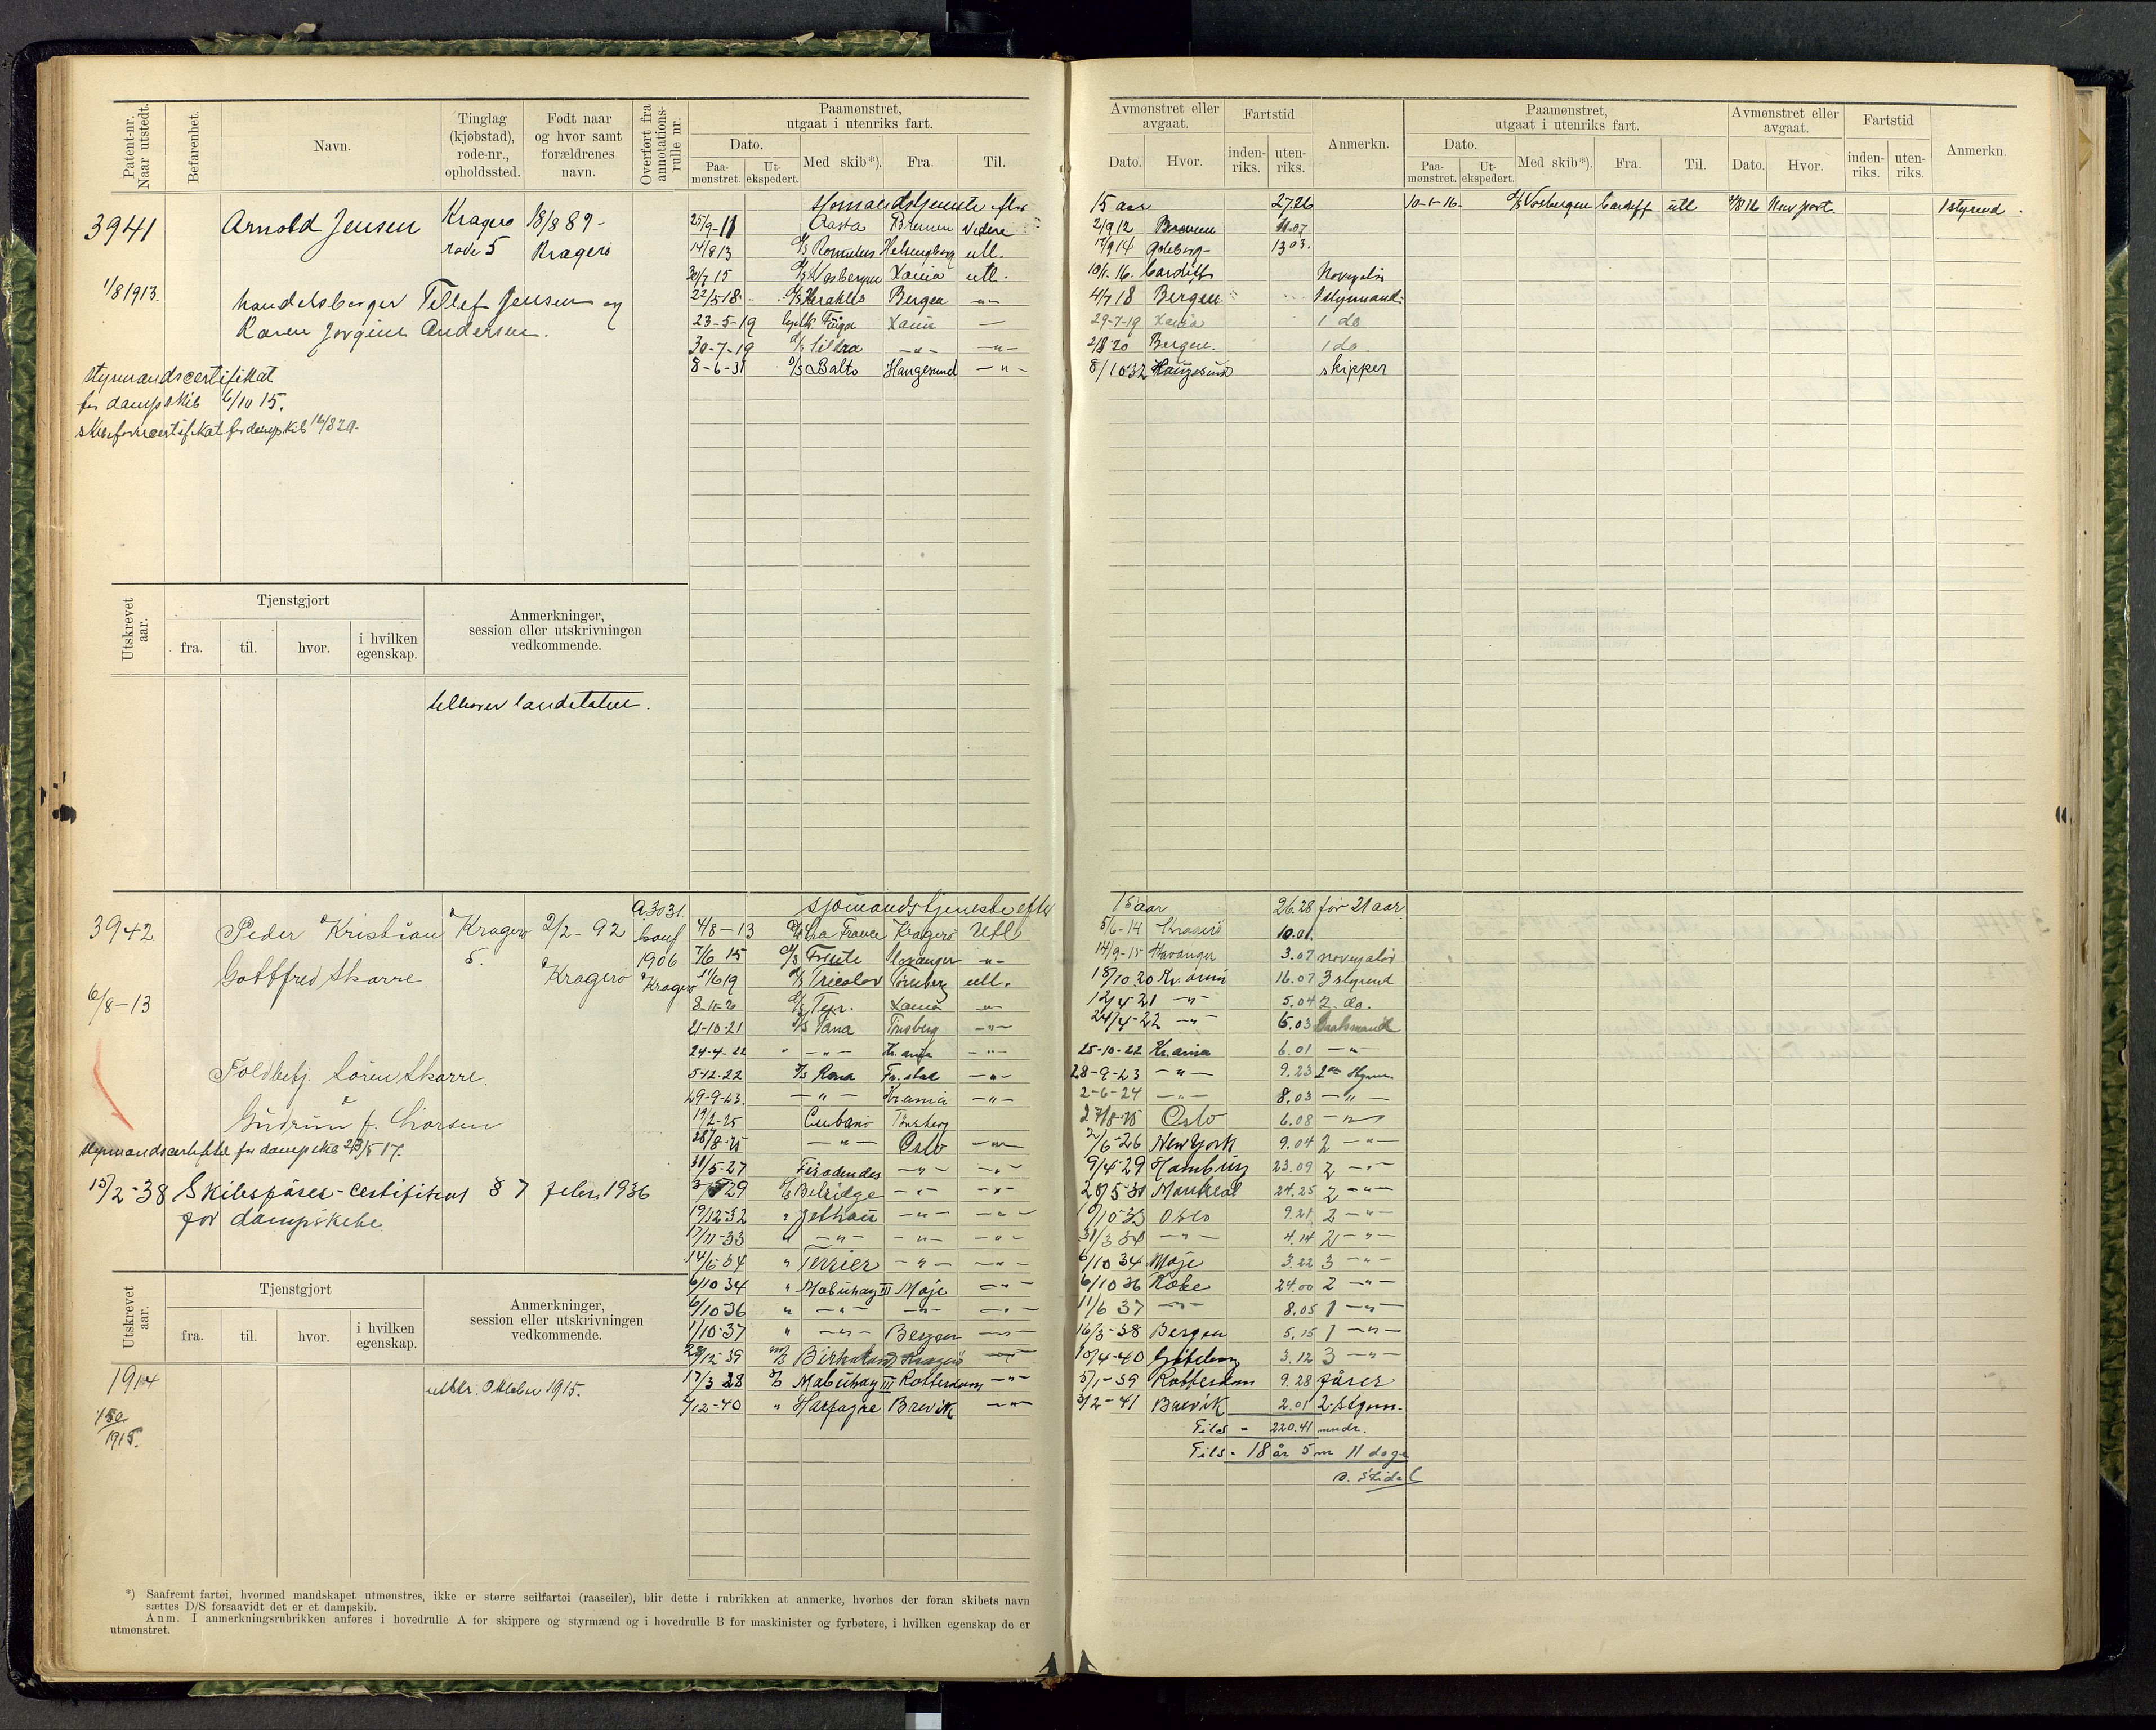 Patent-nr. Naar utstedt.
Befarenhet.
Navn.
Tinglag (kjøbstad), rode-nr., opholdssted.
Født naar og hvor samt forældrenes navn.
Overført fra annotations-rulle nr.
Paamønstret, utgaat i utenriks fart.
Dato.
Paa-mønstret.
Ut-ekspedert.
Med skib*).
Fra.
Til.
Avmønstret eller avgaat.
Dato.
Hvor.
Fartstid
inden-riks.
uten-riks.
Anmerkn.
Paamønstret, utgaat i utenriks fart.
Dato.
Paa-mønstret.
Ut-ekspedert.
Med skib*).
Fra.
Til.
Avmønstret eller avgaat.
Dato.
Hvor.
Fartstid
inden-riks.
uten-riks.
Anmerkn.
3941
Arnold Jensen
Kragerø rode 5
18/8 89 - Kragerø
1/8 1913.
Handelsborger Tellef Jensen og
Karen Jørgine Andersen.
Styrmandscertifikat
for dampskib 6/10 15.
Sømandstjeneste efter 15 aar 27.26
25/9-11 Aasta Bremen Videre 2/9 12 Bremen 11.07
14/8 13 D/S Romulus Helsingborg utl. 17/9 14 Goteborg - 13 03.
30/7 15 D/S Vosbergen Xania utl. 10/1. 16. Cardiff
22/5-18 D/S Herakles Bergen -"- 4/7 18 Bergen 1 styrmand.
23-5-19 Xania — 29-7-19 Xania 1 do
30-7-19 D/S Sildra -"- -"- 2/8 20 Bergen. 1 do
8-6-31 D/S Balto Haugesund -"- 8/10 32 Haugesund skipper
10-1-16. D/S Vosbergen Cardiff utl Newport. 1 styrmd.
Utskrevet aar.
Tjenstgjort
fra.
til.
hvor.
i hvilken egenskap.
Anmerkninger, session eller utskrivningen vedkommende.
tilhører landetaten.
3942
Peder Kristian
Gottfred Skarre
Kragerø 5.
2/2 - 92
Kragerø
A.3031.
konf
1906
Kragerø
6/8-13
Toldbetj. Søren Skarre.
Gudrun f. Larsen
Styrmandscertifikat for dampskib 23/5 17.
15/2-38 Skibsførercertifikat § 7 febr. 1936
for dampskibe
sjømandstjeneste efter 15 aar 26.28 før 21 aar
4/8-13 La France Kragerø Utl 5/6-14 Kragerø 10.01.
7/6 15 D/S -"- 14/9-15 3.07
11/6 19 D/S Tricolor Tønsberg utl. 18/10 20 Kr.ania 16.07 3 styrmd
8-11-20 D/S Tyr. Xania -"- 12/4 21 -"- 5.04 2. do.
21-10-21 D/S Rana Tønsberg -"- 24/4-22 -"- 6.03
24-4-22 " -"- Kr.ania -"- 25-10-22 Kr.ania 6.01 -"-
5-12-22 D/S Rena Fr.stad -"- 28-9-23 -"- 9.23 2en Styrm.
29-9-23. -"- Krania -"- 2-6-24 -"- 8.03 -"-
19/2-25 Cubano Tønsberg 27/8-25 Oslo 6.08 -"-
28/8-25 -"- Oslo -"- 2/6-26 New York 9.04 2 -"-
31/5-27 -"- -"- 9/4-29 Hamburg 23.09 2 -"-
Belridge -"- -"- 28/5-31 Montreal 24.25 2 -"-
19/12-32 " -"- -"- 9/10-33 Oslo 9.21 2 -"-
17/11-33 " -"- -"- -"- 31/3 34 -"- 4.14 2 -"-
14/6 34 " Terrier -"- -"- 6/10 34 Moje 3.22 3 -"-
6/10 34 " Mabuhay III Moje -"- 6/10 36 Kobe 24.00 2 -"-
6/10 36 " -"- -"- -"- 11/6 37 -"- 8.05 1 -"-
1/10-37 " -"- Bergen -"- 16/3-38 Bergen 5.15 1 -"-
28/12-39 m/s Birkeland Kragerø -"- 10/4-40 Gøteborg 3.12 3 -"-
17/3 38 D/S Mabuhay III Rotterdam -"- 5/1-39 Rotterdam 9.28 fører
4/12-40 " Harpagne Brevik -"- 3/2-41 Brevik 2.01 2-styrm.
Tils - 220.41 mndr.
Tils - 18 år 5 m 11 dage
Utskrevet aar.
Tjenstgjort
fra.
til.
hvor.
i hvilken egenskap.
Anmerkninger, session eller utskrivningen vedkommende.
1914
1915.
utskr. Oktober 1915.
*) Saafremt fartøi, hvormed mandskapet utmønstres, ikke er større seilfartøi (raaseiler), blir dette i rubrikken at anmerke, hvorhos der foran skibets navn
sættes D/S forsaavidt det er et dampskib.
Anm. I anmerkningsrubrikken anføres i hovedrulle A for skippere og styrmænd og i hovedrulle B for maskinister og fyrbøtere, i hvilken egenskap de er
utmønstret.